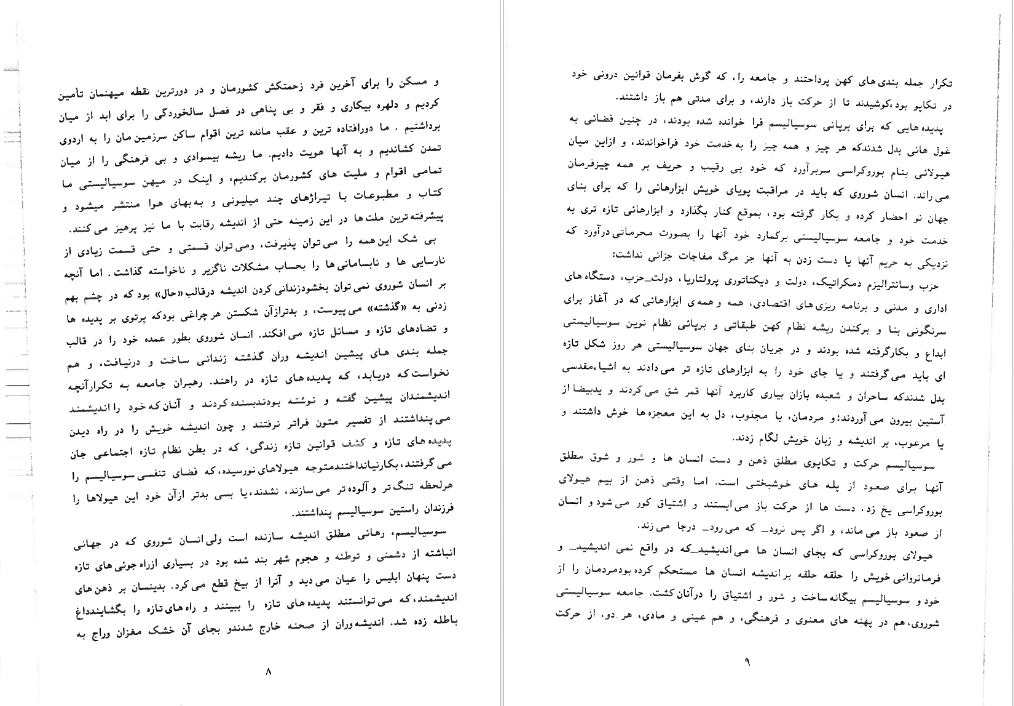 و مسکن را برای آخرین فرد زحمتکش کشورمان و در دورترین نقطه میهنمان تأمین
کردیم و دلهره بیکاری و فقر و بی پناهی در فصل سالخوردگی را برای ابد از میان
برداشتیم . ما دورافتاده ترین و عقب مانده ترین اقوام ساکن سرزمین مان را به اردوی
تمدن کشاندیم و به آنها هویت دادیم. ما ریشه بیسوادی و بی فرهنگی را از میان
تمامی اقوام و ملیت های کشورمان برکندیم، و اینک در میهن سوسیالیستی ما
کتاب و مطبوعات با تیراژهای چند میلیونی و به‌بهای هوا منتشر میشود و
پیشرفته ترین ملت‌ها در این زمینه حتی از اندیشه رقابت با ما نیز پرهیز می کنند.
بی شک این همه را می توان پذیرفت، ومی توان قسمتی و حتی قسمت زیادی از
نارسایی ها و نابسامانی ها را بحساب مشکلات ناگزیر و ناخواسته گذاشت. اما آنچه
بر انسان شوروی نمی توان بخشودزندانی کردن اندیشه درقالب«حال» بود که در چشم بهم
زدنی به «گذشته» می پیوست، و بدترازآن شکستن هرچراغی بودکه پرتوی بر پدیده ها
و تضادهای تازه و مسائل تازه می افکند. انسان شوروی بطور عمده خود را در قالب
جمله بندی های پیشین اندیشه وران گذشته زندانی ساخت و درنیافت، و هم
نخواست که دریابد، که پدیده های تازه در راهند. رهبران جامعه به تکرارآنچه
اندیشمندان پیشین گفته و نوشته بودندبسنده کردند و آنان که خود را اندیشمند
می پنداشتند از تفسیر متون فراتر نرفتند و چون اندیشه خویش را در راه دیدن
پدیده های تازه و کشف قوانین تازه زندگی، که در بطن نظام تازه اجتماعی جان
می گرفتند، بکارنیانداختندمتوجه هیولاهای نورسیده، که فضای تنفسی سوسیالیسم را
هرلحظه تنگ تر و آلوده تر می سازند، نشدند، یا بسی بدتر ازآن خود این هیولاها را
فرزندان راستین سوسیالیسم پنداشتند.
سوسیالیسم، رهائی مطلق اندیشه سازنده است ولی انسان شوروی که در جهانی
انباشته از دشمنی و توطئه و هجوم شهر بند شده بود در بسیاری ازراه جوئی های تازه
دست پنهان ابلیس را عیان می دید و آنرا از بیخ قطع می کرد. بدینسان بر ذهن های
اندیشمند، که می توانستند پدیده های تازه را ببینند و راه های تازه را بگشایندداغ
باطله زده شد. اندیشه وران از صحنه خارج شدندو بجای آن خشک مغزان وراج به
۸
تکرار جمله بندی های کهن پرداختند و جامعه را، که گوش بفرمان قوانین درونی خود
در تکاپو بود، کوشیدند تا از حرکت باز دارند، و برای مدتی هم باز داشتند.
پدیده هایی که برای برپائی سوسیالیسم فرا خوانده شده بودند، در چنین فضائی به
غول هائی بدل شدندکه هر چیز و همه چیز را به خدمت خود فراخواندند، و ازاین میان
هیولائی بنام بوروکراسی سربرآورد که خود بی رقیب و حریف بر همه چیزفرمان
می راند. انسان شوروی که باید در مراقبت پویای خویش ابزارهائی را که برای بنای
جهان نو احضار کرده و بکار گرفته بود، بموقع کنار بگذارد و ابزارهائی تازه تری به
خدمت خود و جامعه سوسیالیستی برگمارد خود آنها را بصورت محرماتی درآورد که
نزدیکی به حریم آنها یا دست زدن به آنها جز مرگ مفاجات جزائی نداشت:
حزب وسانترالیزم دمکراتیک، دولت و دیکتاتوری پرولتاریا، دولت_حزب، دستگاه های
اداری و مدنی و برنامه ریزی های اقتصادی، همه و همه ی ابزارهائی که در آغاز برای
سرنگونی بنا و برکندن ریشه نظام کهن طبقاتی و برپائی نظام نوین سوسیالیستی
ابداع و بکارگرفته شده بودند و در جریان بنای جهان سوسیالیستی هر روز شکل تازه
ای باید می گرفتند و یا جای خود را به ابزارهای تازه تر می دادند به اشیاء مقدسی
بدل شدندکه ساحران و شعبده بازان بیاری کاربرد آنها قمر شق می کردند و یدبیضا از
آستین بیرون می آوردند؛ و مردمان، یا مجذوب، دل به این معجزه ها خوش داشتند و
یا مرعوب، بر اندیشه و زبان خویش لگام زدند.
سوسیالیسم حرکت و تکاپوی مطلق ذهن و دست انسان ها و شور و شوق مطلق
آنها برای صعود از پله های خوشبختی است. اما وقتی ذهن از بیم هیولای
بوروکراسی یخ زد، دست ها از حرکت باز می ایستند و اشتیاق کور می شود و انسان
از صعود باز می ماند، و اگر پس نرود_ که می رود_ درجا می زند.
هیولای بوروکراسی که بجای انسان ها می اندیشید_که در واقع نمی اندیشید_ و
فرمانروانی خویش را حلقه حلقه بر اندیشه انسان ها مستحکم کرده بودمردمان را از
خود و سوسیالیسم بیگانه ساخت و شور و اشتیاق را درآنان کشت. جامعه سوسیالیستی
شوروی، هم در پهنه های معنوی و فرهنگی، و هم عینی و مادی، هر دو، از حرکت
۹